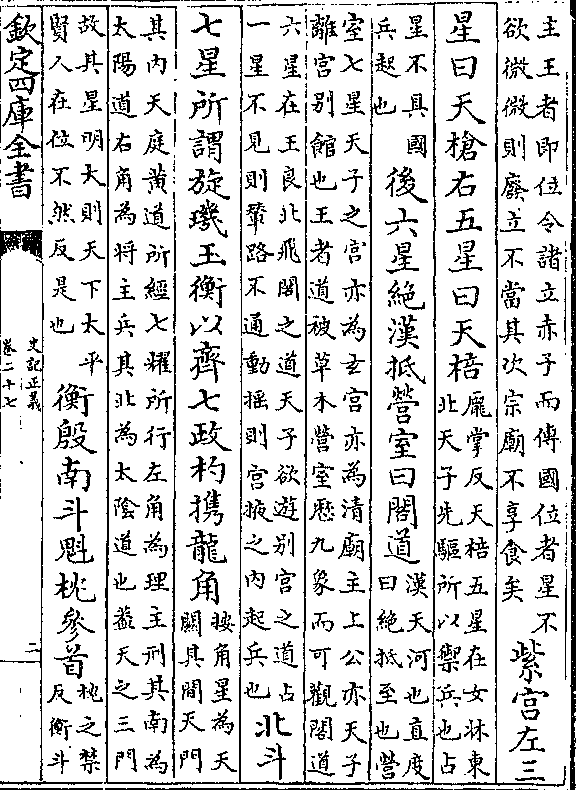 主王者即位令諸立赤子而傳國位者星不
欲微微則廢立不當其次宗廟不享食矣
紫宫左三
星曰天槍右五星曰天棓
龎掌反天棓五星在女牀東
北天子先驅所以禦兵也占
星不具國
兵起也
後六星絶漢抵營室曰閣道
漢天河也直度
曰絶抵至也營
室七星天子之宫亦為玄宫亦為清廟主上公亦天子
離宫别館也王者道被草木營室歴九象而可觀閣道
六星在王良北飛閣之道天子欲遊别宫之道占
一星不見則輦路不通動揺則宫掖之内起兵也
北斗
七星所謂旋璣玉衡以齊七政杓攜龍角
按角星為天
關其間天門
其内天庭黄道所經七耀所行左角為理主刑其南為
太陽道右角為将主兵其北為太陰道也葢天之三門
故其星明大則天下太平
賢人在位不然反是也
衡殷南斗魁枕參首
枕之禁
反衡斗
欽定四庫全書
史記正義
卷二十七
二